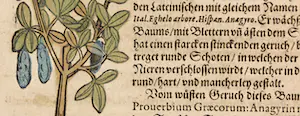 den Lateinischen mit gleichem Namen
Ital. Eghelo arbore. Hispan. Anagyro. Er wächs
Baums/mit Blettern vñ ästen dem S
hat einen starcken stinckenden geruch/
treget runde Schoten/in welchen der
Nieren verschlossen wirdt/welcher in d
rund/hart/vnd mancherley gestalt.
Vom wüsten Geruch dieses Baum
Prouerbium Græcorum: Anagyrin